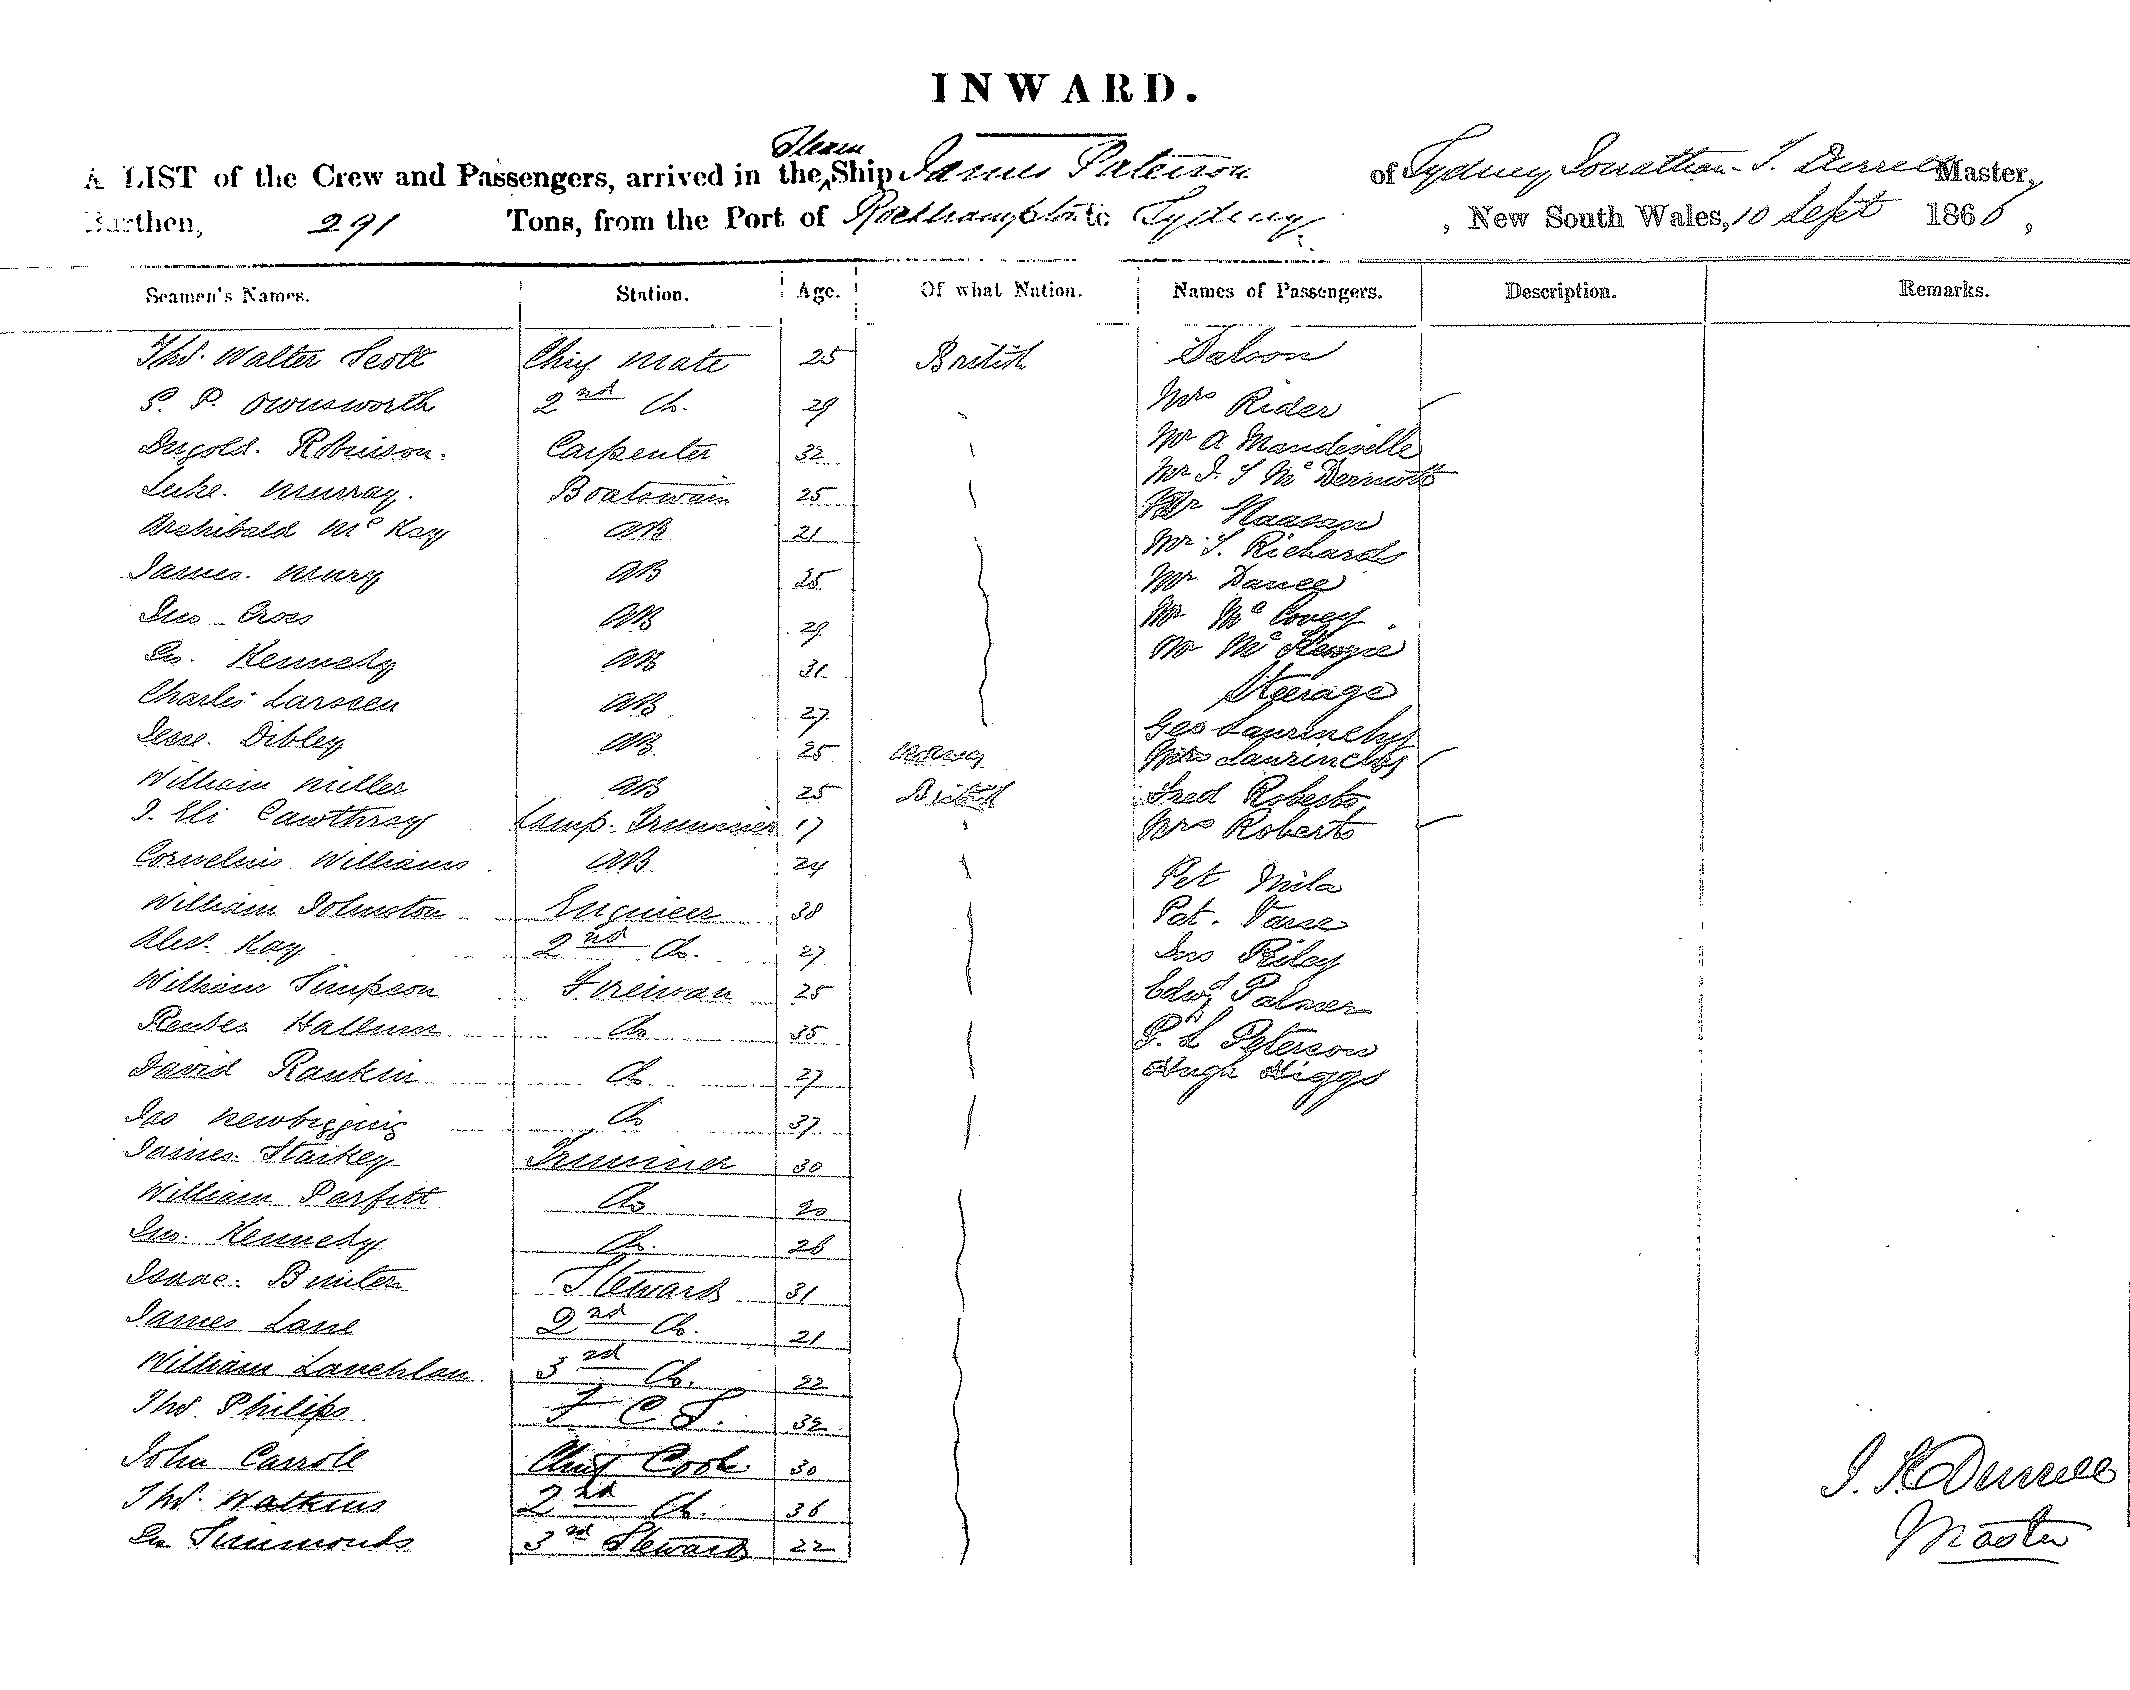 INWARD.
A LIST of the Crew and Passengers, arrived in the Steam Ship James Paterson of Sydney, Jonathan S. Durrell Master,
Burthen, 291 Tons, from the Port of Rockhampton to Sydney, New South Wales, 10 Sept 1866,
Seamen's Names. Station. Age. Of what Nation. Names of Passengers. Description. Remarks.
Thos. Walter Scott Chief Mate 25 British Saloon
S. P. Ownsworth 2nd Do. 29 Mrs Rider
Dugold. Robinson. Carpenter 32 Mr A Mandeville
Luke. Murray. Boatswain 25 Mr J. S McDermott
Archibald McKay AB 21 Mr
James. Mury AB 25 Mr. S. Richards
Jno Cross AB 29 Mr Dance
Jno. Kennedy AB 31 Mr McCovey
Charles Larssen AB 27 Mr McKenzie
Jesse. Dibley AB 25 Steerage
William Miller AB 25 British Geo Laurinchy
J. Eli Cawthray Lamp. Trimmer 17 Mrs Laurinchy
Cornelius Williams AB 24 Fred Roberts
William Johnston Engineer 38 Mrs Roberts
Alexr. Kay 2nd Do. 27 Pet Mila
William Simpson Fireman 25 Pat.
Reuben Hallum Do 35 Jno Riley
David Rankin Do 27 Edwd Palmer
Jas Newbigging Do 37 P. L Peterson
James Starkey Trimmer 30 Hugh Higgs
William Parfitt Do 20
Jno. Kennedy Do. 26
Isaac. Bunter Steward 31
James Lane 2nd Do. 21
William Lauchlan 3rd Do. 22
Thos Philips F C S. 32
John Carroll Chief Cook 30
Thos. Watkins 2nd Do. 36
Jno Simmonds 3rd Steward 22
J. S. Durrell
Master